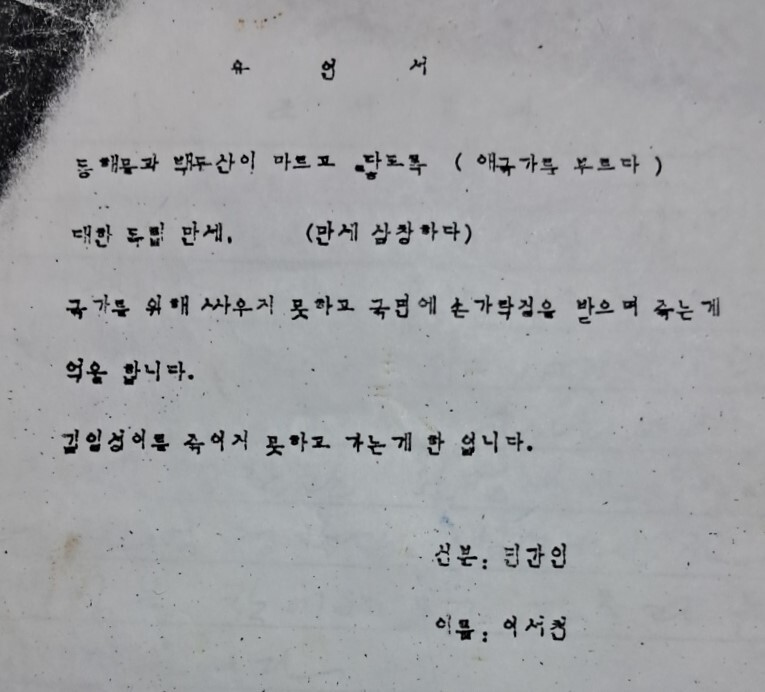 유 언 서
동해물과 백두산이 마르고 닳도록 ( 애국가를 부르다 )
대한 독립 만세. (만세 삼창하다)
국가를 위해 싸우지 못하고 국민에 손가락짐을 받으며 죽는게
억울 합니다.
김일성이를 죽이지 못하고 가는게 한 입니다.
신분: 민간인
이름: 이서천